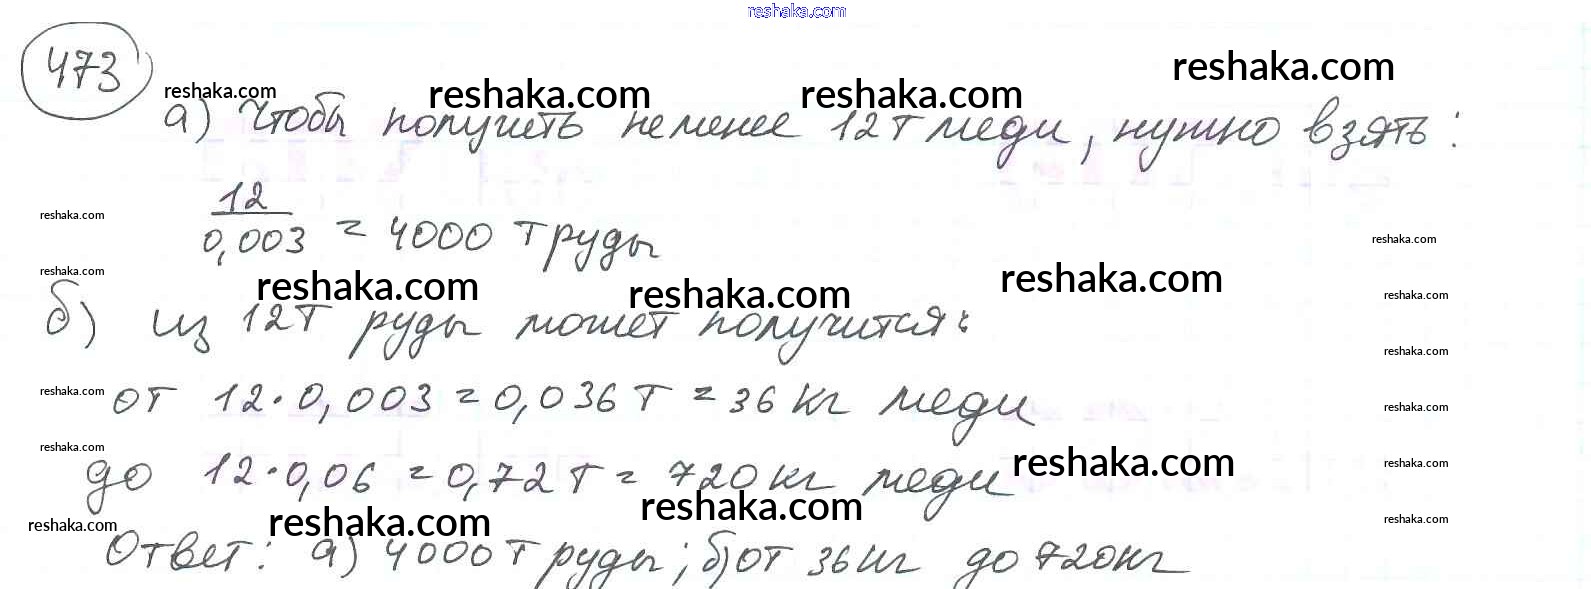 reshaka.com
473
reshaka.com reshaka.com reshaka.com reshaka.com
а) Чтобы получить не менее 12 т меди, нужно взять:
reshaka.com
12/0,003 = 4000 т руды
reshaka.com
reshaka.com reshaka.com reshaka.com reshaka.com
reshaka.com
б) из 12 т руды может получится:
reshaka.com
reshaka.com
от 12·0,003 = 0,036 т = 36 кг меди
reshaka.com
reshaka.com reshaka.com reshaka.com
до 12·0,06 = 0,72 т = 720 кг меди
reshaka.com reshaka.com reshaka.com reshaka.com
Ответ: а) 4000 т руды; б) от 36 кг до 720 кг